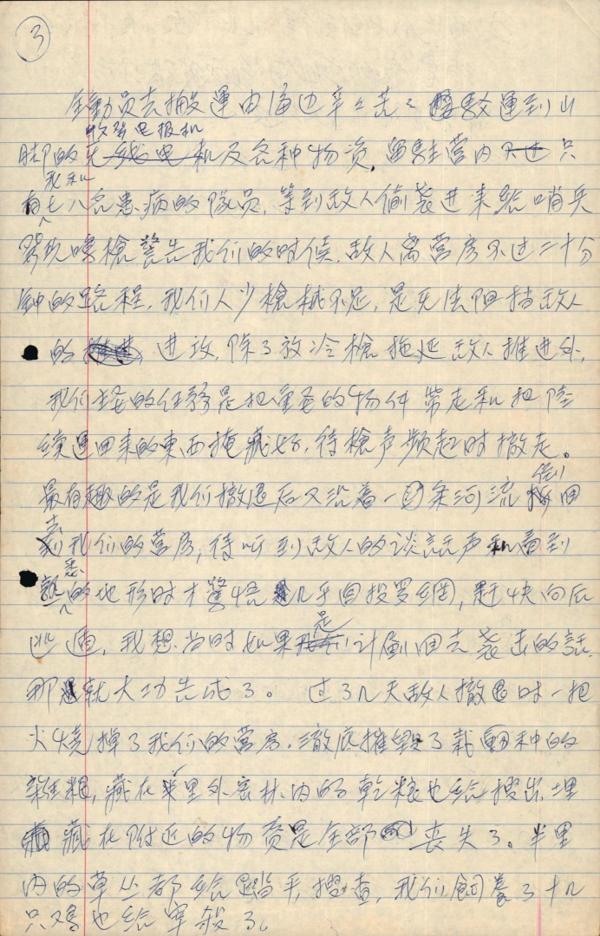 ③
全動員去搬運由海边辛辛苦苦 運到山
收發电报机
脚的 及各种物資,留駐營内 只
我和
有七八名患病的隊員,等到敌人偷袭进来給哨兵
發現嗚槍警告我们的时候,敌人离营房不过二十分
鈡的路程,我们人少槍械不足,是无法阻挡敌人
的 进攻,除了放冷槍拖延敌人推进外,
我们主要的任務是把重要的物件带走和把陸
续運回来的東西掩藏好,待槍声频起时撤走。
最有趣的是我们撤退后又沿着一条河流倒回
去我们的营房,待听到敌人的谈話声和看到
熟悉的地形时才驚悟几乎自投罗網,赶快向后
逃退,我想当时如果是计劃回去袭击的話
那就大功告成了。 过了几天敌人撤退时一把
火燒掉了我们的营房,澈底摧毀了栽种的
雜粮,藏在 里外密林内的乾粮也給搜出,埋
藏在附近的物資是全部丧失了。半里
内的草丛都給踏平,搜查,我们飼養了十几
只鸡也給宰殺了。